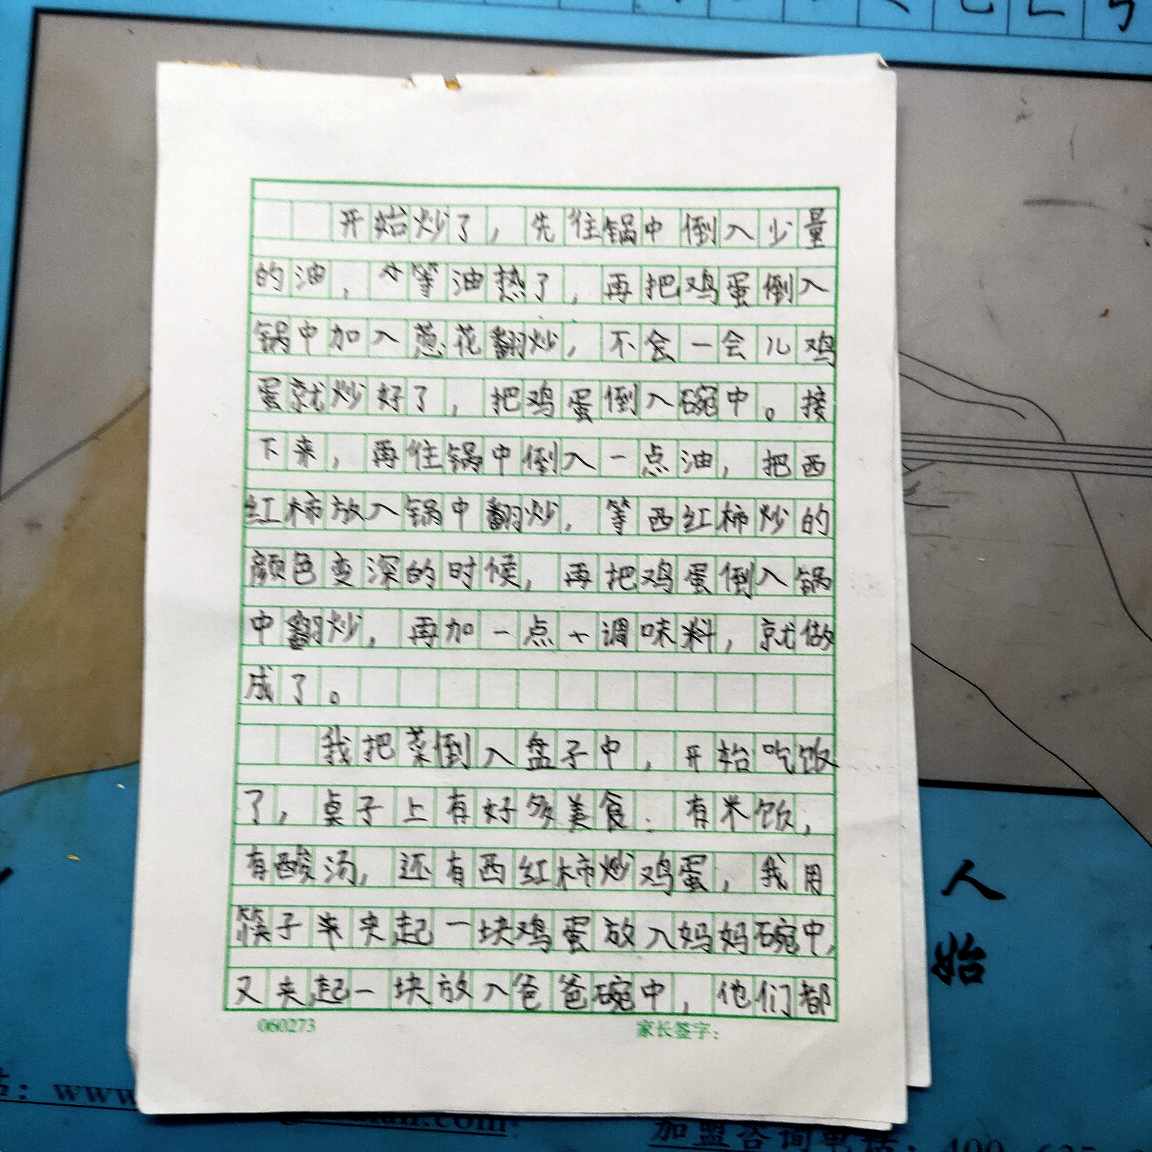 开始炒了，先往锅中倒入少量
的油，个等油热了，再把鸡蛋倒入
锅中加入葱花翻炒，不会一会儿鸡
蛋就炒好了，把鸡蛋倒入碗中。接
下来，再往锅中倒入一点油，把西
红柿放入锅中翻炒，等西红柿炒的
颜色变深的时候，再把鸡蛋倒入锅
中翻炒，再加一点调味料，就做
成了。
我把菜倒入盘子中，开始吃饭
了，桌子上有好多美食：有米饭，
有酸汤，还有西红柿炒鸡蛋，我用
筷子夹起一块鸡蛋放入妈妈碗中，
又夹起一块放入爸爸碗中，他们都
060273 家长签字：
人
始
www.
加盟咨询电话：400